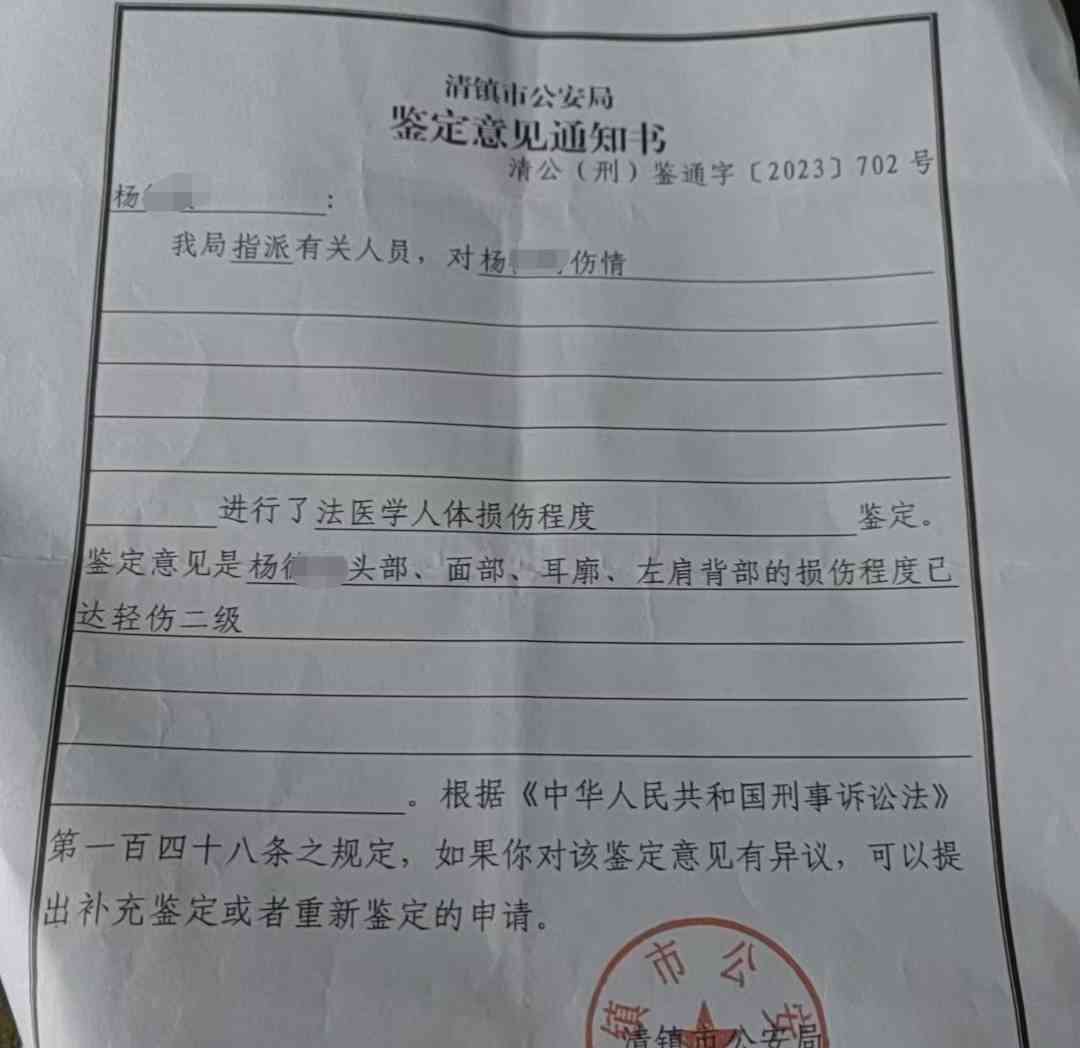 清镇市公安局
鉴定意见通知书
清公（刑）鉴通字〔2023〕702 号
杨：
我局指派有关人员，对杨伤情
进行了法医学人体损伤程度 鉴定。
鉴定意见是杨头部、面部、耳廓、左肩背部的损伤程度已
达轻伤二级
。根据《中华人民共和国刑事诉讼法》
第一百四十八条之规定，如果你对该鉴定意见有异议，可以提
出补充鉴定或者重新鉴定的申请。
镇市公安
清镇市公安局